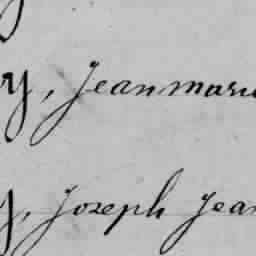 y, Jeanmarie
y, Joseph Jean